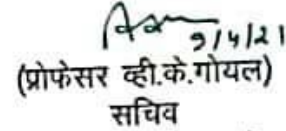 9/4/21
(प्रोफेसर व्ही.के.गोयल)
सचिव